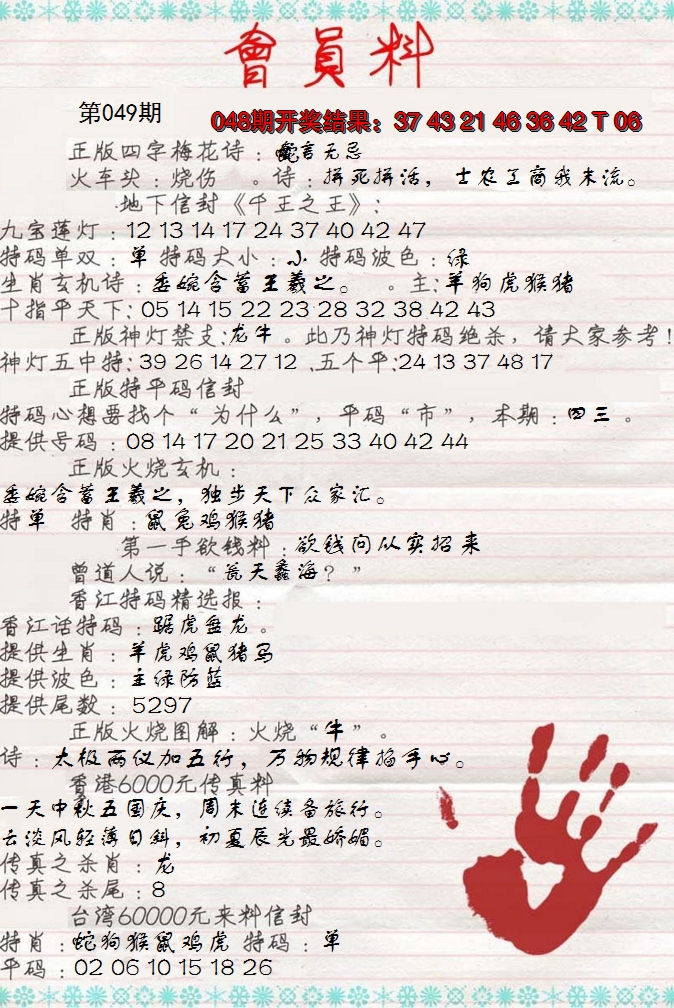 會員料
第049期
048期开奖结果：37 43 21 46 36 42 T 06
正版四字梅花诗：言无忌
火车头：烧伤　。诗：拼死拼活，士农工商我末流。
地下信封《千王之王》：
九宝莲灯：12 13 14 17 24 37 40 42 47
特码单双：单 特码大小：小 特码波色：绿
生肖玄机诗：委婉含蓄王羲之。　。主：羊狗虎猴猪
十指平天下：05 14 15 22 23 28 32 38 42 43
正版神灯禁支：龙牛。此乃神灯特码绝杀，请大家参考！
神灯五中特：39 26 14 27 12 .五个平：24 13 37 48 17
正版特平码信封
特码心想要找个“为什么”，平码“市”，本期：四三。
提供号码：08 14 17 20 21 25 33 40 42 44
正版火烧玄机：
委婉含蓄王羲之，独步天下众家汇。
特单　特肖：鼠兔鸡猴猪
第一手欲钱料：欲钱问从实招来
曾道人说：“荒天蠡海？”
香江特码精选报：
香江话特码：踞虎盘龙。
提供生肖：羊虎鸡鼠猪马
提供波色：主绿防蓝
提供尾数：5297
正版火烧图解：火烧“牛”。
诗：太极两仪加五行，万物规律掐手心。
香港6000元传真料
一天中秋五国庆，周末连续备旅行。
云淡风轻薄日斜，初夏辰光最娇媚。
传真之杀肖：龙
传真之杀尾：8
台湾60000元来料信封
特肖：蛇狗猴鼠鸡虎 特码：单
平码：02 06 10 15 18 26